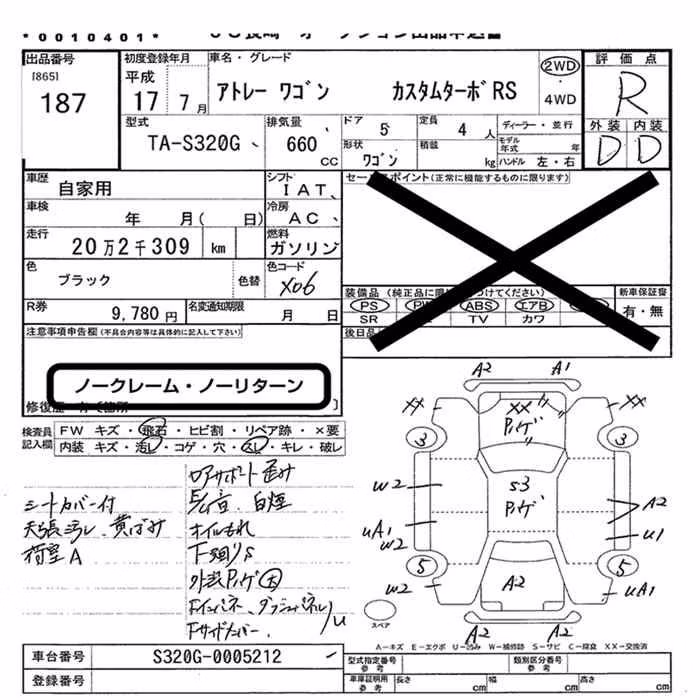 *0010401*
出品番号
[865]
187
初度登録年月
平成
17 7月
車名・グレード
アトレー ワゴン カスタムターボRS
2WD
4WD
評価点
R
外装 内装
D D
型式
TA-S320G
排気量
660
CC
ドア
5
定員
4人
ディーラー・並行
形状
ワゴン
積載
kg
モデル年式
年
ハンドル 左・右
車歴
自家用
シフト
IAT
セールスポイント(正常に機能するものに限ります)
車検
年 月( 日)
冷房
AC
走行
20万2千309 km
燃料
ガソリン
色
ブラック
色替
色コード
X06
装備品
PS PW ABS エアB
SR TV カワ
新車保証書
有・無
R券
9,780円
名変通知期限
月 日
後日品
注意事項申告欄(不具合内容等は具体的に記入して下さい)
ノークレーム・ノーリターン
検査員記入欄
FW キズ・飛石・ヒビ割・リペア跡・×要
内装 キズ・汚レ・コゲ・穴・スレ・キレ・破レ
シートカバー付
天張汚レ、黄ばみ
荷室A
白煙
オイルもれ
下廻りS
A2 A1
XX XX XX
3 3
W2
S3
A2
UA1
W2
U1
5 5
W2
A2
UA1
A2 A2
スペア
A-キズ E-エクボ U-凹み W-補修跡 S-サビ C-腐食 XX-交換済
車台番号
S320G-0005212
登録番号
型式指定番号
参考
類別区分番号
参考
車庫証明用
参考
長さ cm 幅 cm 高さ cm